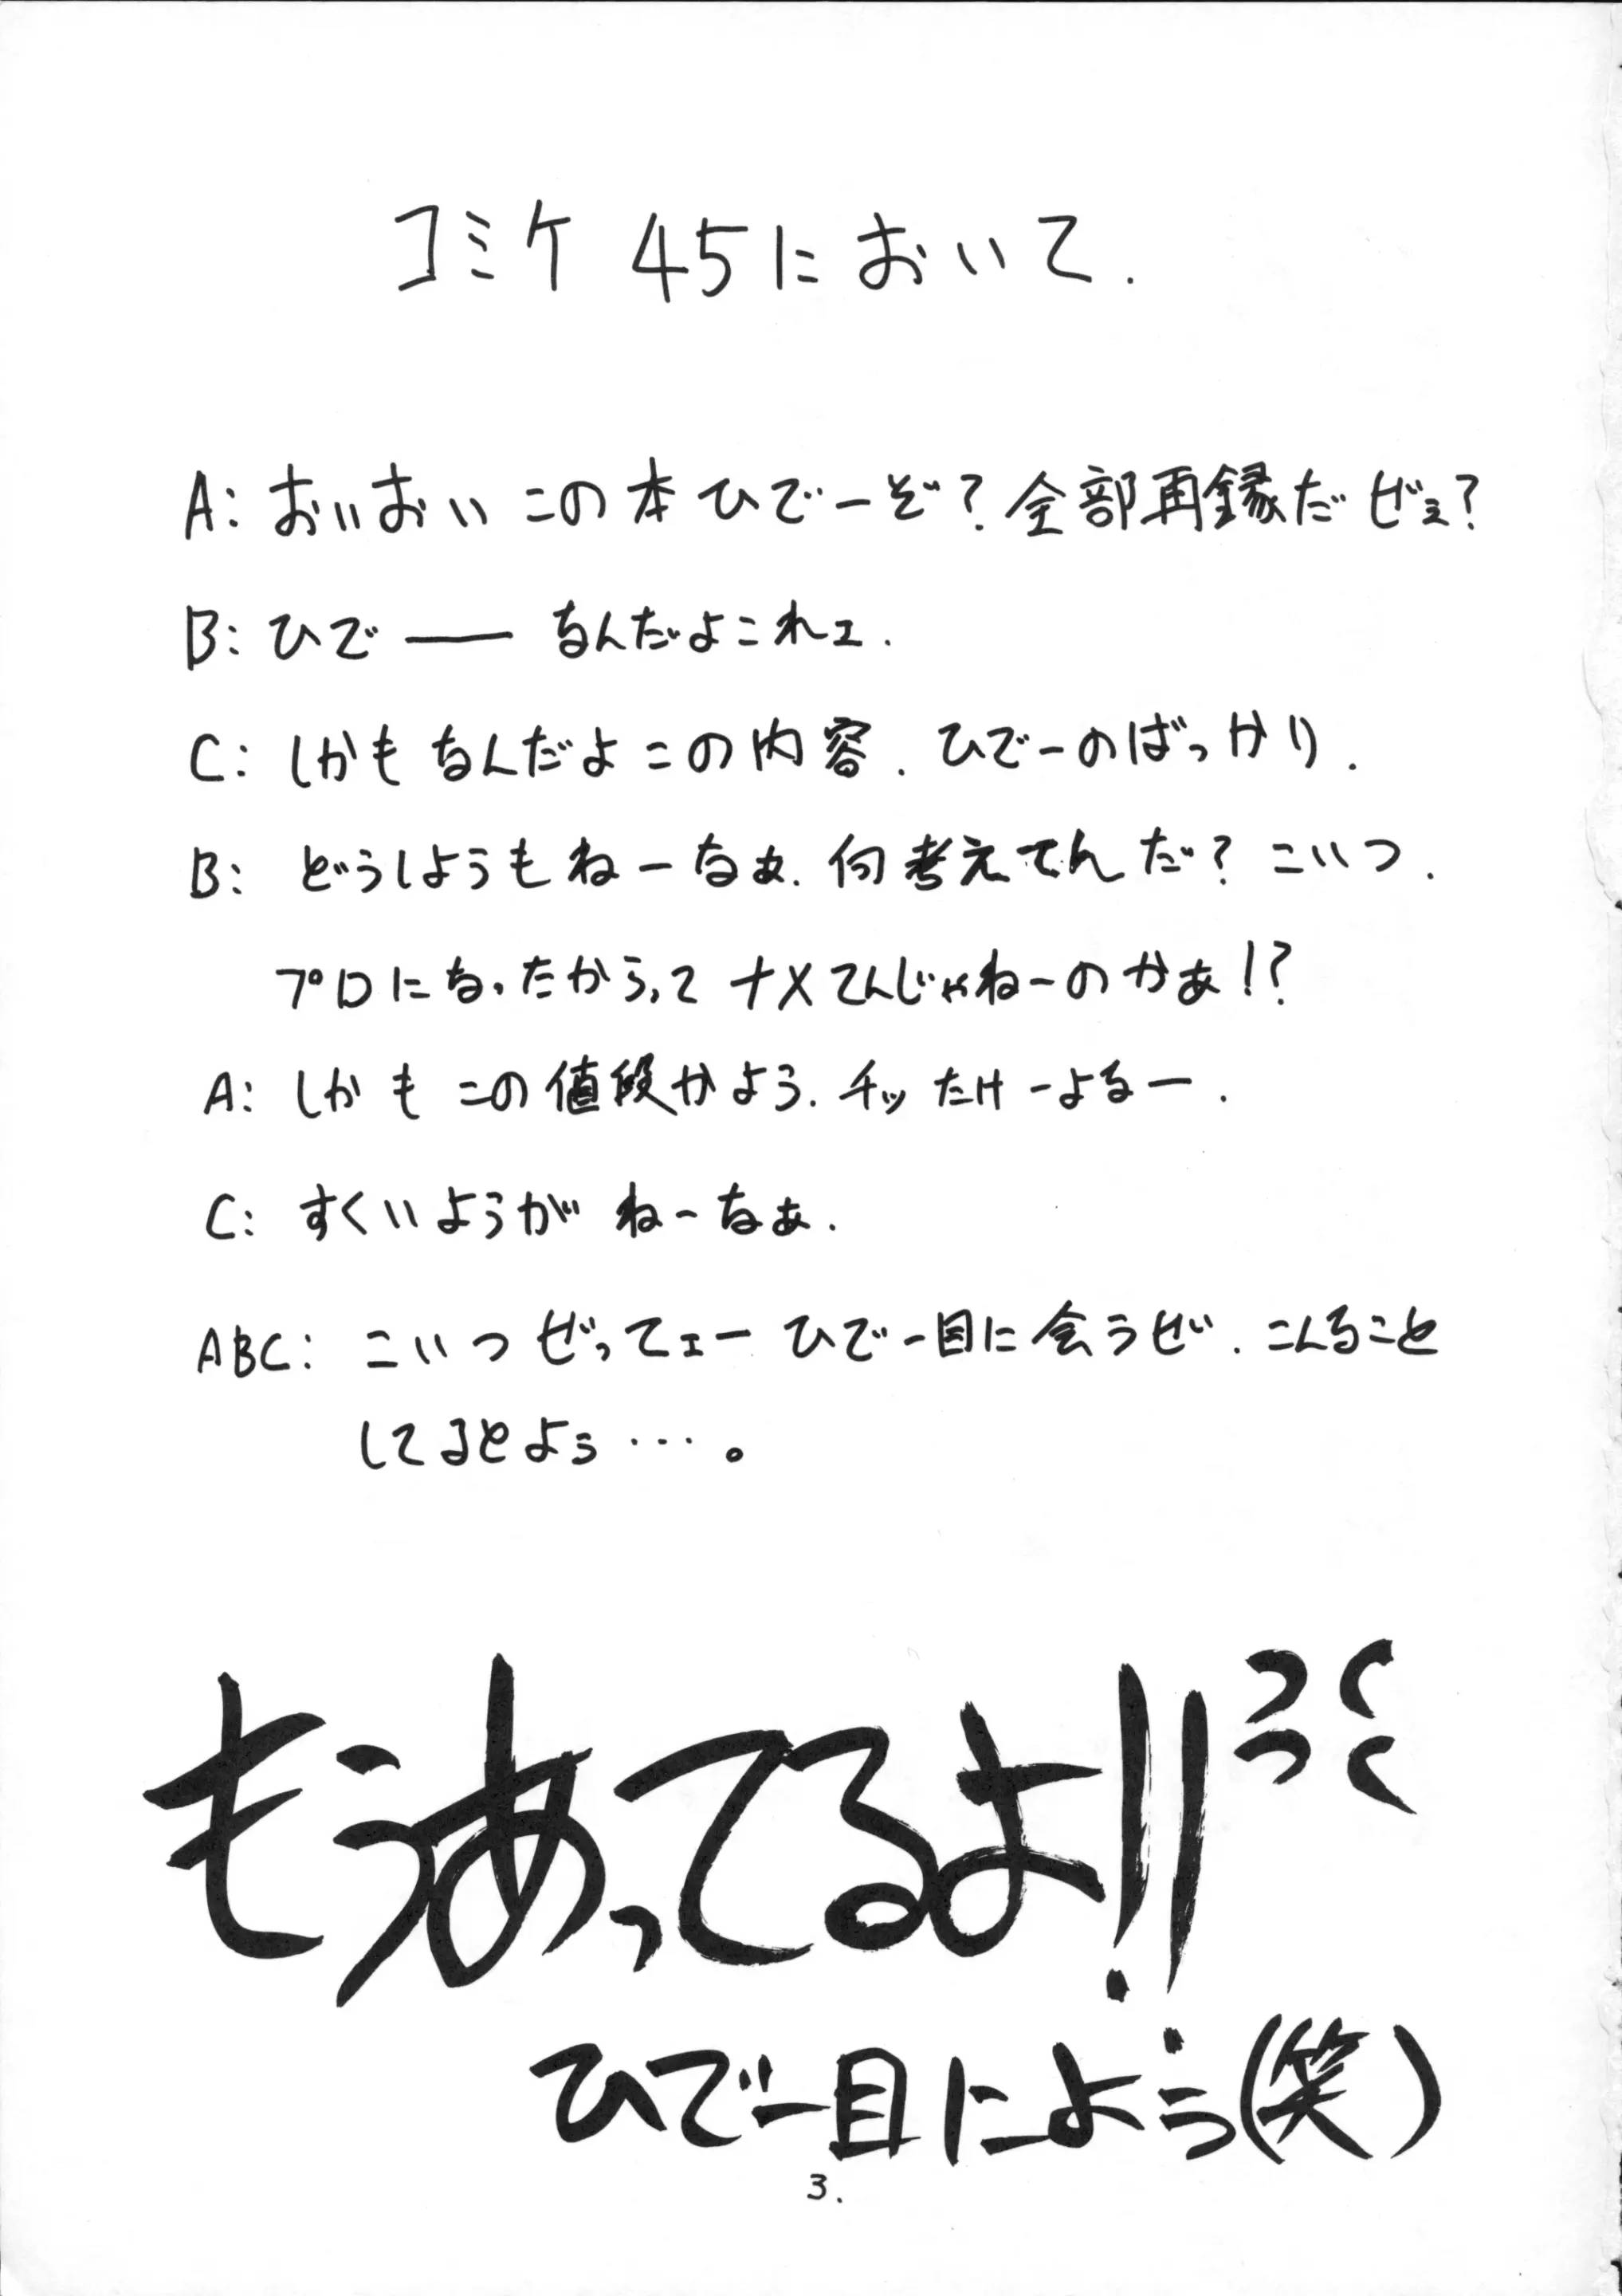 コミケ 45において.
A: おいおい この本ひでーぞ? 全部再録だぜぇ?
B: ひで―― なんだよこれェ.
C: しかもなんだよこの内容. ひでーのばっかり.
B: どうしようもねーなぁ. 何考えてんだ? こいつ.
プロになったからってナメてんじゃねーのかぁ!?
A: しかもこの値段かよう. チッ たけーよなー.
C: すくいようがねーなぁ.
ABC: こいつぜってェーひでー目に会うぜ. こんなこと
してるとよぅ…。
もうあってるよ!!
ひでー目によぅ(笑)
3.